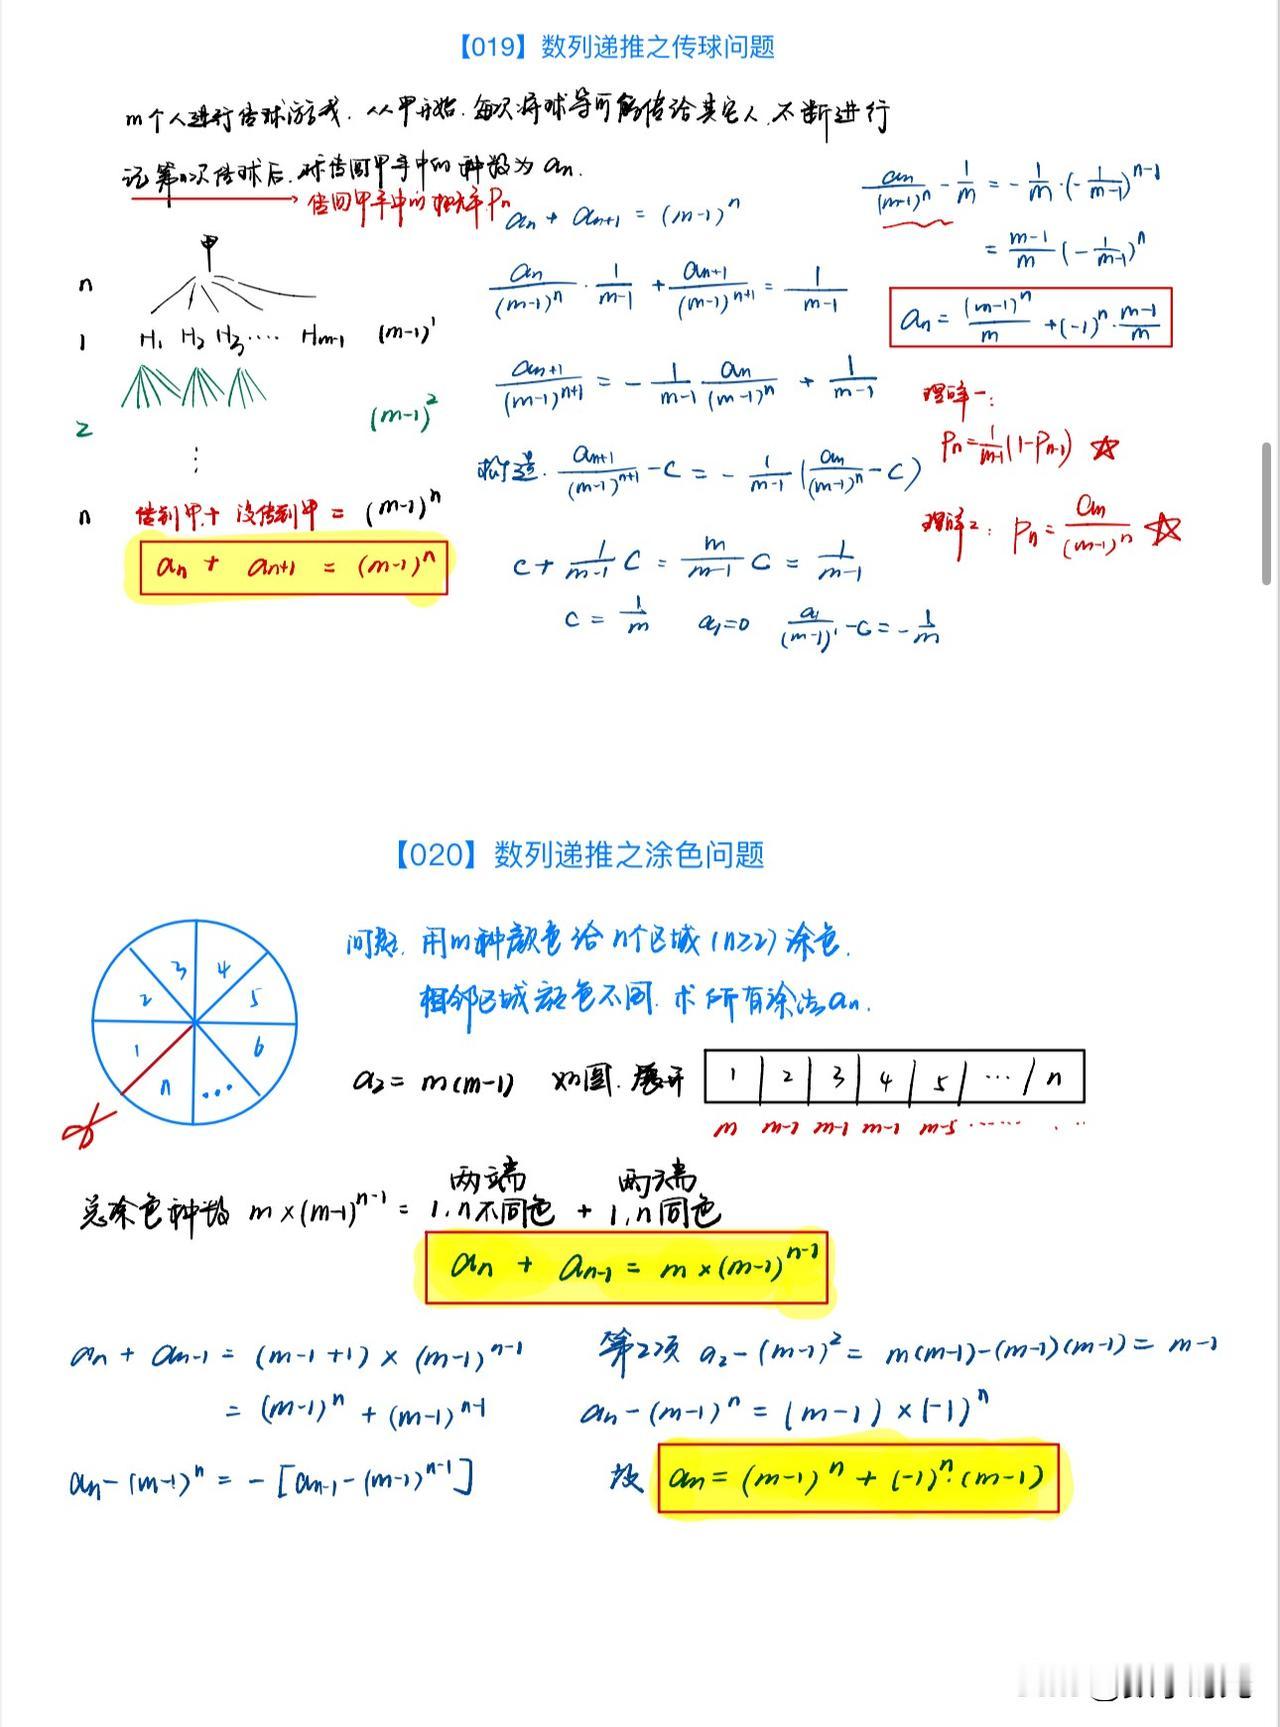 【019】数列递推之传球问题
m个人进行传球游戏. 从甲开始. 每次将球等可能传给其它人. 不断进行
记第n次传球后. 球传回甲手中的种数为 aₙ.
传回甲手中的概率Pₙ
甲
n
1 H₁ H₂ H₃ ···· Hₘ₋₁ (m-1)¹
2 (m-1)²
⋮
n 传到甲+没传到甲 = (m-1)ⁿ
aₙ + aₙ₊₁ = (m-1)ⁿ
aₙ + aₙ₊₁ = (m-1)ⁿ
aₙ/(m-1)ⁿ · 1/(m-1) + aₙ₊₁/(m-1)ⁿ⁺¹ = 1/(m-1)
aₙ₊₁/(m-1)ⁿ⁺¹ = - 1/(m-1) aₙ/(m-1)ⁿ + 1/(m-1)
构造. aₙ₊₁/(m-1)ⁿ⁺¹ - C = - 1/(m-1) (aₙ/(m-1)ⁿ - C)
C + 1/(m-1) C = m/(m-1) C = 1/(m-1)
C = 1/m a₁=0 a₁/(m-1)¹ - C = - 1/m
aₙ/(m-1)ⁿ - 1/m = - 1/m · (- 1/(m-1))ⁿ⁻¹
= (m-1)/m (- 1/(m-1))ⁿ
aₙ = (m-1)ⁿ/m + (-1)ⁿ · (m-1)/m
理解一:
Pₙ = 1/(m-1) (1-Pₙ₋₁) ☆
理解2: Pₙ = aₙ/(m-1)ⁿ ☆
【020】数列递推之涂色问题
1 2 3 4 5 6 ··· n
问题. 用m种颜色给n个区域(n≥2)涂色.
相邻区域颜色不同. 求所有涂法aₙ.
a₂ = m(m-1) 如图. 展开 1 2 3 4 5 ··· n
m m-1 m-1 m-1 m-5 ······ ··
两端 两端
总涂色种数 m×(m-1)ⁿ⁻¹ = 1,n不同色 + 1,n同色
aₙ + aₙ₋₁ = m×(m-1)ⁿ⁻¹
aₙ + aₙ₋₁ = (m-1+1) × (m-1)ⁿ⁻¹
= (m-1)ⁿ + (m-1)ⁿ⁻¹
aₙ - (m-1)ⁿ = - [aₙ₋₁ - (m-1)ⁿ⁻¹]
第2项 a₂ - (m-1)² = m(m-1)-(m-1)(m-1) = m-1
aₙ - (m-1)ⁿ = (m-1) × (-1)ⁿ
故 aₙ = (m-1)ⁿ + (-1)ⁿ·(m-1)